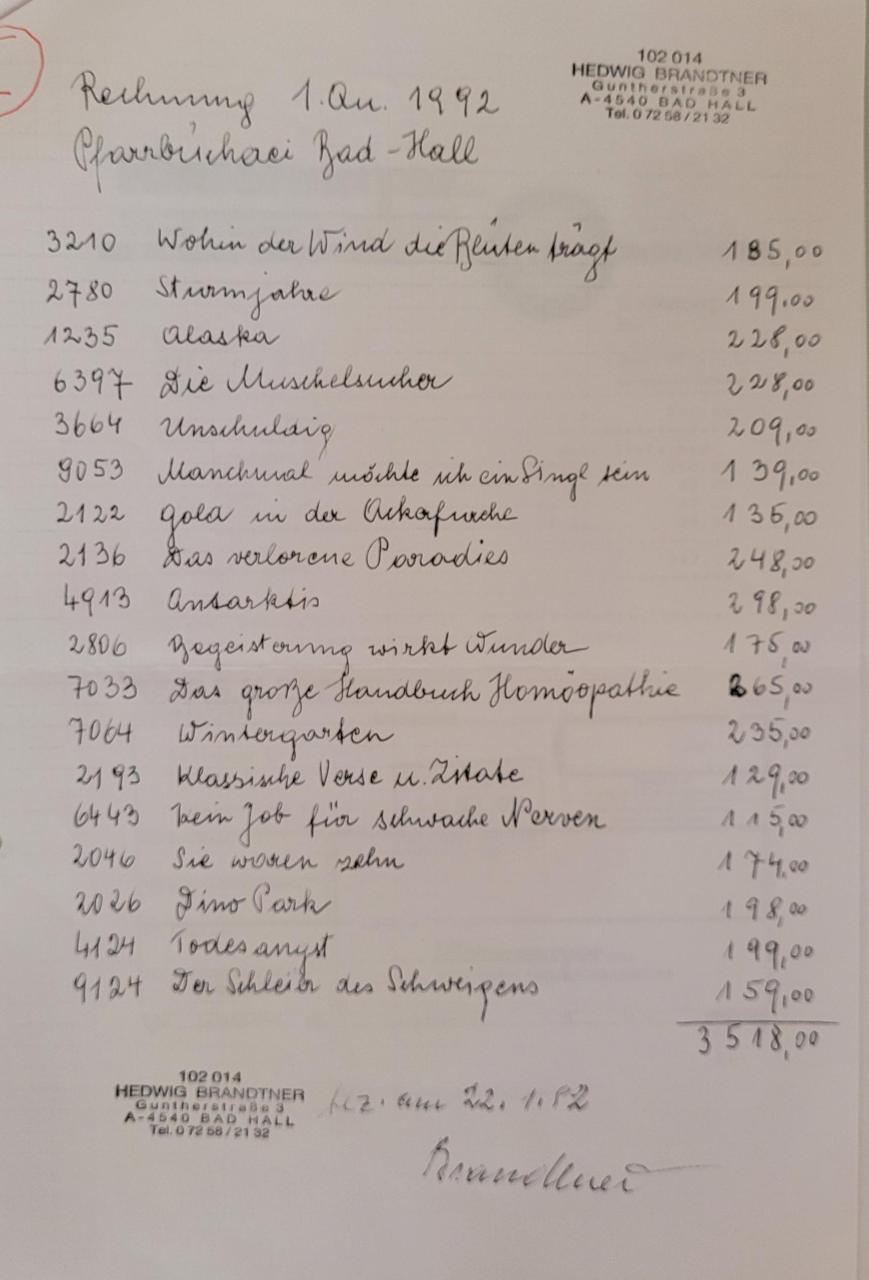 102 014
HEDWIG BRANDTNER
Guntherstraße 3
A-4540 BAD HALL
Tel. 0 72 58 / 21 32
Rechnung 1. Qu. 1992
Pfarrbücherei Bad-Hall
3210 Wohin der Wind die Blüten trägt 185,00
2780 Sturmjahre 199.00
1235 Alaska 228,00
6397 Die Muschelsucher 228,00
3664 Unschuldig 209,00
9053 Manchmal möchte ich ein Singl sein 139,00
2122 Gold in der Ackerfurche 135,00
2136 Das verlorene Paradies 248,00
4913 Antarktis 298,00
2806 Begeisterung wirkt Wunder 175,00
7033 Das große Handbuch Homöopathie 265,00
7064 Wintergarten 235,00
2193 Klassische Verse u. Zitate 129,00
6443 kein Job für schwache Nerven 115,00
2046 Sie waren zehn 174,00
2026 Dino Park 198,00
4124 Todesangst 199,00
9124 Der Schleier des Schweigens 159,00
3518,00
102 014
HEDWIG BRANDTNER
Guntherstraße 3
A-4540 BAD HALL
Tel. 0 72 58 / 21 32
bez. am 22. 1. 92
Brandtner